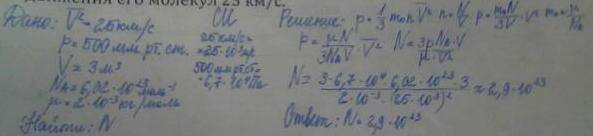 движения его молекул 25 км/с.
Дано:
V² = 25 км/с
p = 500 мм рт. ст.
V = 3 м³
N_A = 6,02 · 10²³ моль⁻¹
μ = 2 · 10⁻³ кг/моль
Найти: N
СИ
25 км/с =
= 25 · 10³ м/с
500 мм рт. ст. =
= 6,7 · 10⁴ Па
Решение: p = 1/3 m₀ n V² n = N/V p = m₀N/3V · V² m₀ = μ/N_A
p = μN/3N_A V · V² N = 3pN_A · V / μ · V²
N = 3 · 6,7 · 10⁴ · 6,02 · 10²³ · 3 / 2 · 10⁻³ · (25 · 10³)² ≈ 2,9 · 10²³
Ответ: N = 2,9 · 10²³